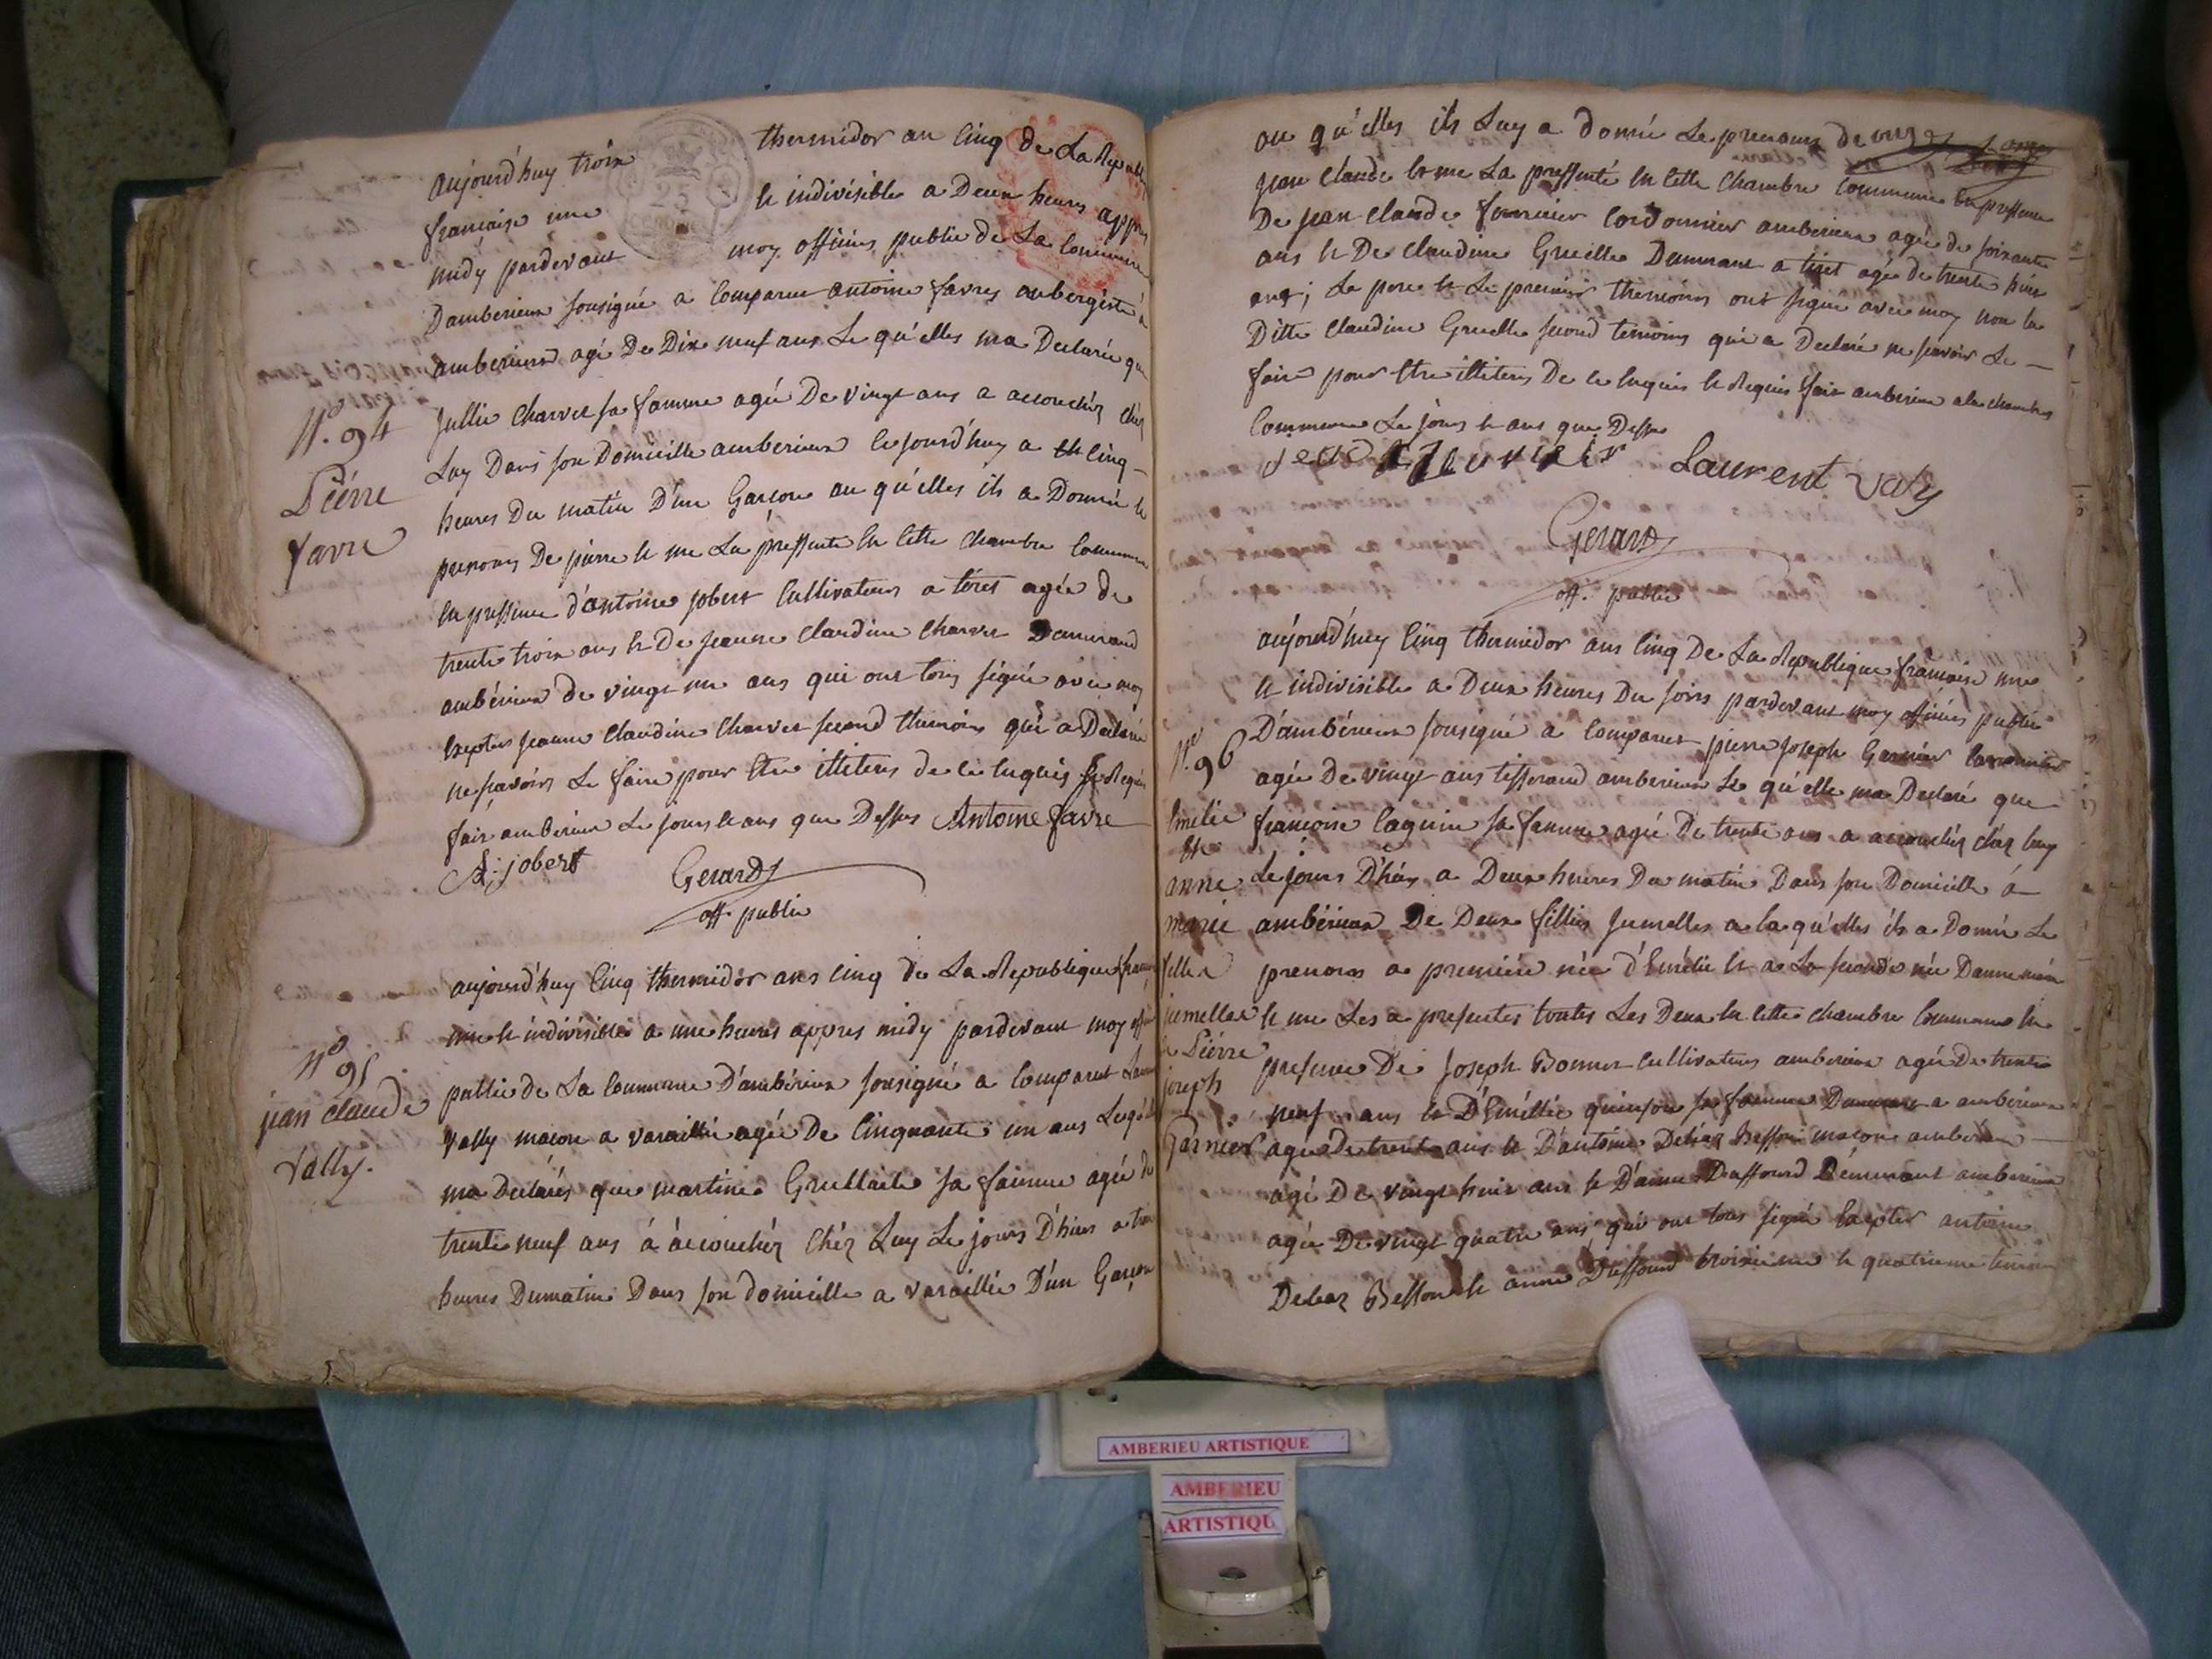 aujourd'huy troix thermidor an cinq de La Republ
francaise une et indivisible a Deux heures appres
midy pardevant moy officies public de La commune
Damberieux sousigné a comparue antoine favres aubergiste a
amberieux agé De Dix neuf ans Le qu'elles ma Declarée que
N.o 94
Piérre
favre
Jullie charvet sa famme agée De vingt ans a accouchéz chéz
Luy Dans son Domicille amberieux cejourd'huy a cinq
heures Du matin D'un Garçon au qu'elles ils a Donnée le
prenoms De pierre et me La pressenté en cette chambre commune
en pressence d'antoine jobert cultivateurs a tiret agée de
trente troix ans et De jeanne claudine charvet Demeurand
ambérieux de vingt un ans qui ont tous signée avec moy
exeptes jeanne claudine charvet second themoins qui a Declaré
ne savoirs Le faire pour etre illiters de ce enquis et Requis
fait amberieux Le jours et ans que Dessus Antoine favre
A: jobert
Gerard
off. public
N.o 95
jean claude
Vally.
aujourd'huy cinq thermidor ans cinq de La Republique francai
une et indivisible a une heures appres midy pardevant moy offi
public de La commune D'ambérieux sousigné a comparut Laurent
Vally macon a vareille agée De cinquante un ans Lequel
ma Declarés que martine Gruellaite sa famme agée de
trente neuf ans á áccouchéz chéz Luy Le jours D'hiers a troi
heures Dumatin Dans son domicille a vareille D'un Garçon
au qu'elles ils Luy a donné Le prenoms de
jean claude et me La pressenté en cette chambre commune en pressence
De jean claude fournier cordonnier amberieux agée de soixante
ans et De claudine Gruelle Demurant a tiret agé de trente huit
ans; Le pere et Le premier themoins ont signe avec moy non la
Ditte claudine Gruelle second temoins qui a Declaré ne scavoir Le
faire pour etre illiters De ce enquis et Requis fait amberieux a la chambre
commune Le jours et ans que Dessus
Laurent Valy
Gerard
off. public
N.o 96
Emélie
et
anne
marie
filles
jumelles
a Piérre
joseph
Garnier
aujourd'huy cinq thermidor ans cinq De La Republique francaise une
et indivisible a Deux heures Du soirs pardevant moy officies public
D'ambérieux sousigné a comparut pierre joseph Garniér
agée De vingt ans tisserand amberieux Le qu'elle ma Declaré que
francoise Laguin sa famme agée De trente ans a accouchéz chez Luy
Le jours D'hiers a Deux heures Du matin Dans son Domicille á
ambérieux De Deux filles Jumelles a la qu'elles ils a Donné Le
prenoms a premiére née d'Emélie et a La seconde née Danne marie
et me Les a presentes toutes Les Deux en cette chambre commune en
presence De joseph Bonnet cultivateurs amberieux agée De trente
neuf ans et D'Emillie quinson sa famme Demurant a amberieux
agée De trente ans et D'antoine Debeaz Besson macon amberieux
agé De vingt huit ans et D'anne Duffourd Démurant amberieux
agée De vingt quatre ans qui ont tous signé exepter antoine
Debeaz Besson et anne Duffourd troisieme et quatrieme temoin
AMBERIEU ARTISTIQUE
AMBERIEU
ARTISTIQU